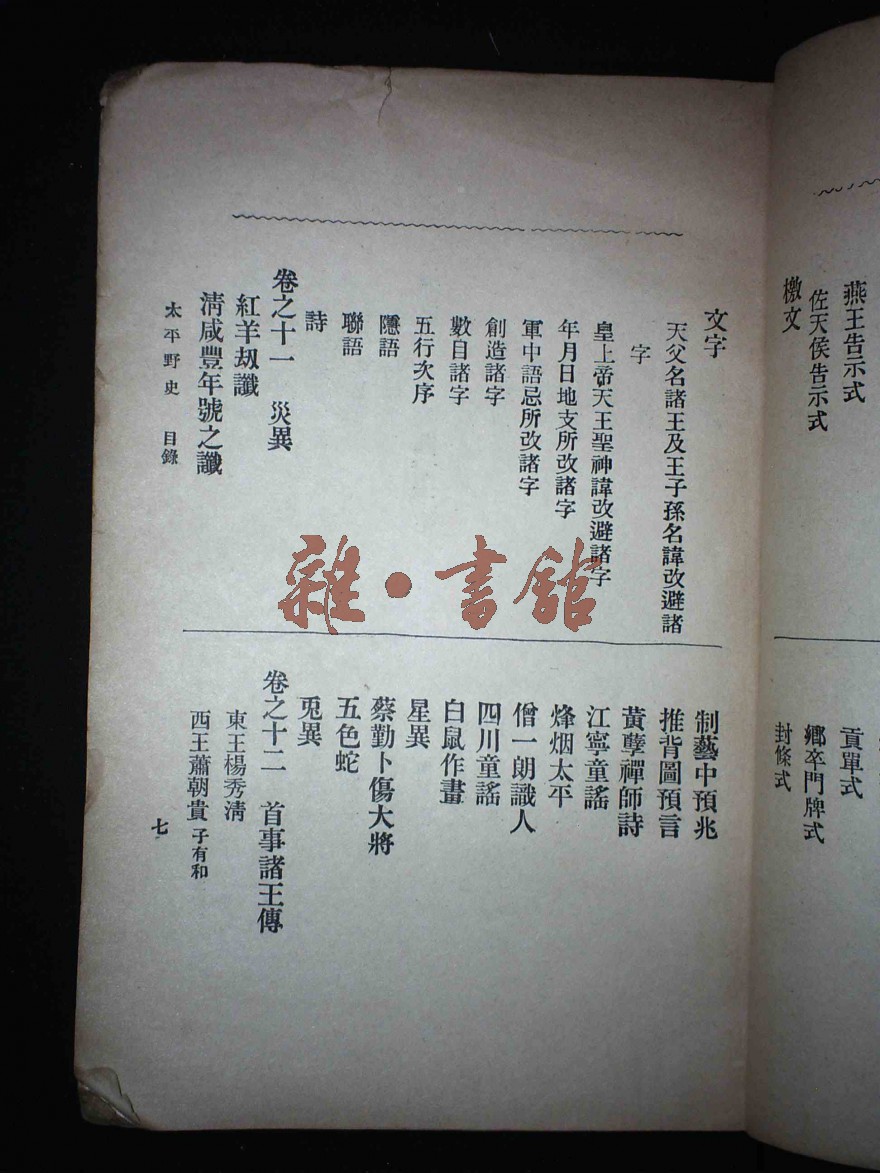 燕王告示式
佐天侯告示式
檄文
貢單式
鄉卒門牌式
封條式
文字
天父名諸王及王子孫名諱改避諸
字
皇上帝天王聖神諱改避諸字
年月日地支所改諸字
軍中語忌所改諸字
創造諸字
數目諸字
五行次序
隱語
聯語
詩
卷之十一 災異
紅羊刼讖
淸咸豐年號之讖
太平野史 目錄
制藝中預兆
推背圖預言
黃孽禪師詩
江寧童謠
烽烟太平
僧一朗識人
四川童謠
白鼠作畫
星異
蔡勤卜傷大將
五色蛇
兎異
卷之十二 首事諸王傳
東王楊秀淸
西王蕭朝貴 子有和
七
雜·書館